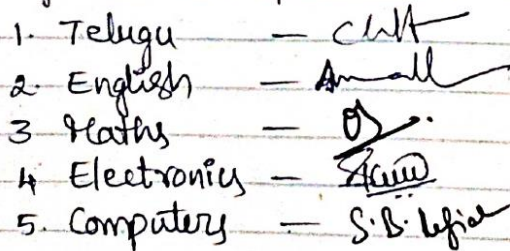 1. Telugu —
2. English —
3 Maths —
4 Electronics —
5. Computers — S.B.